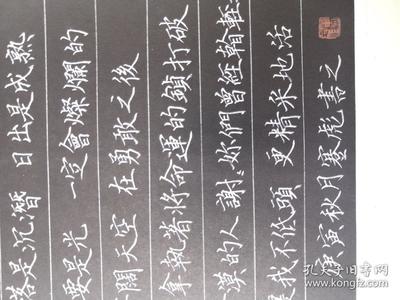 落是沉潛 日出是成熟
要是光 一定會燦爛的
闊天空 在勇敢之後
拿執著將命運的鎖打破
漠的人 謝〻妳們曾經
我不低頭 更精采地活
庚寅秋月蹇彪書之
孔夫子旧书网